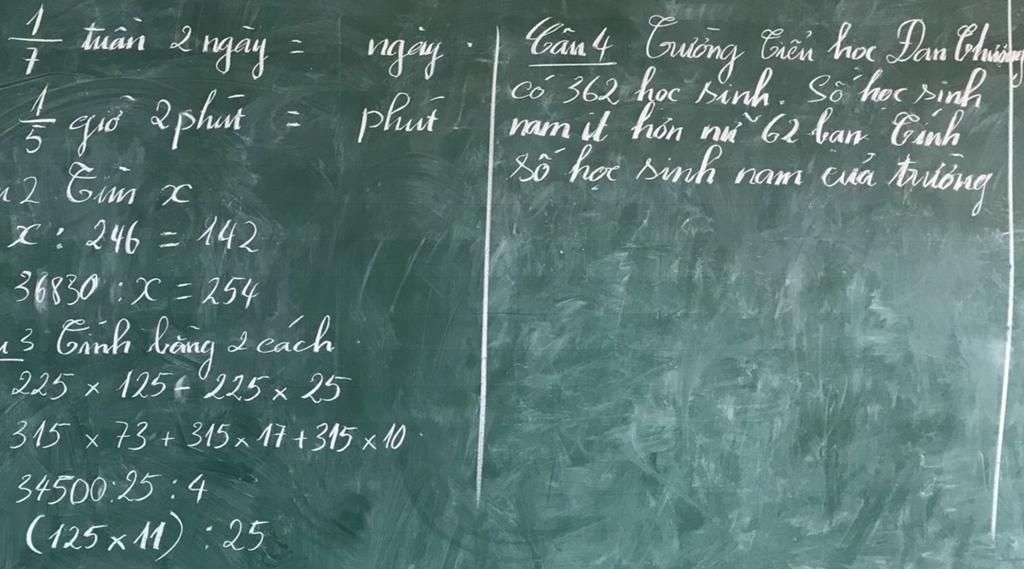 1/7 tuần 2 ngày = ngày .
1/5 giờ 2 phút = phút
2 Tìm x
x : 246 = 142
36830 : x = 254
3 Tính bằng 2 cách
225 x 125 - 225 x 25
315 x 73 + 315 x 17 + 315 x 10
34500 : 25 : 4
(125 x 11) : 25
Câu 4 Trường Tiểu học Đan Phượng
có 362 học sinh. Số học sinh
nam ít hơn nữ 62 bạn Tính
số học sinh nam của trường